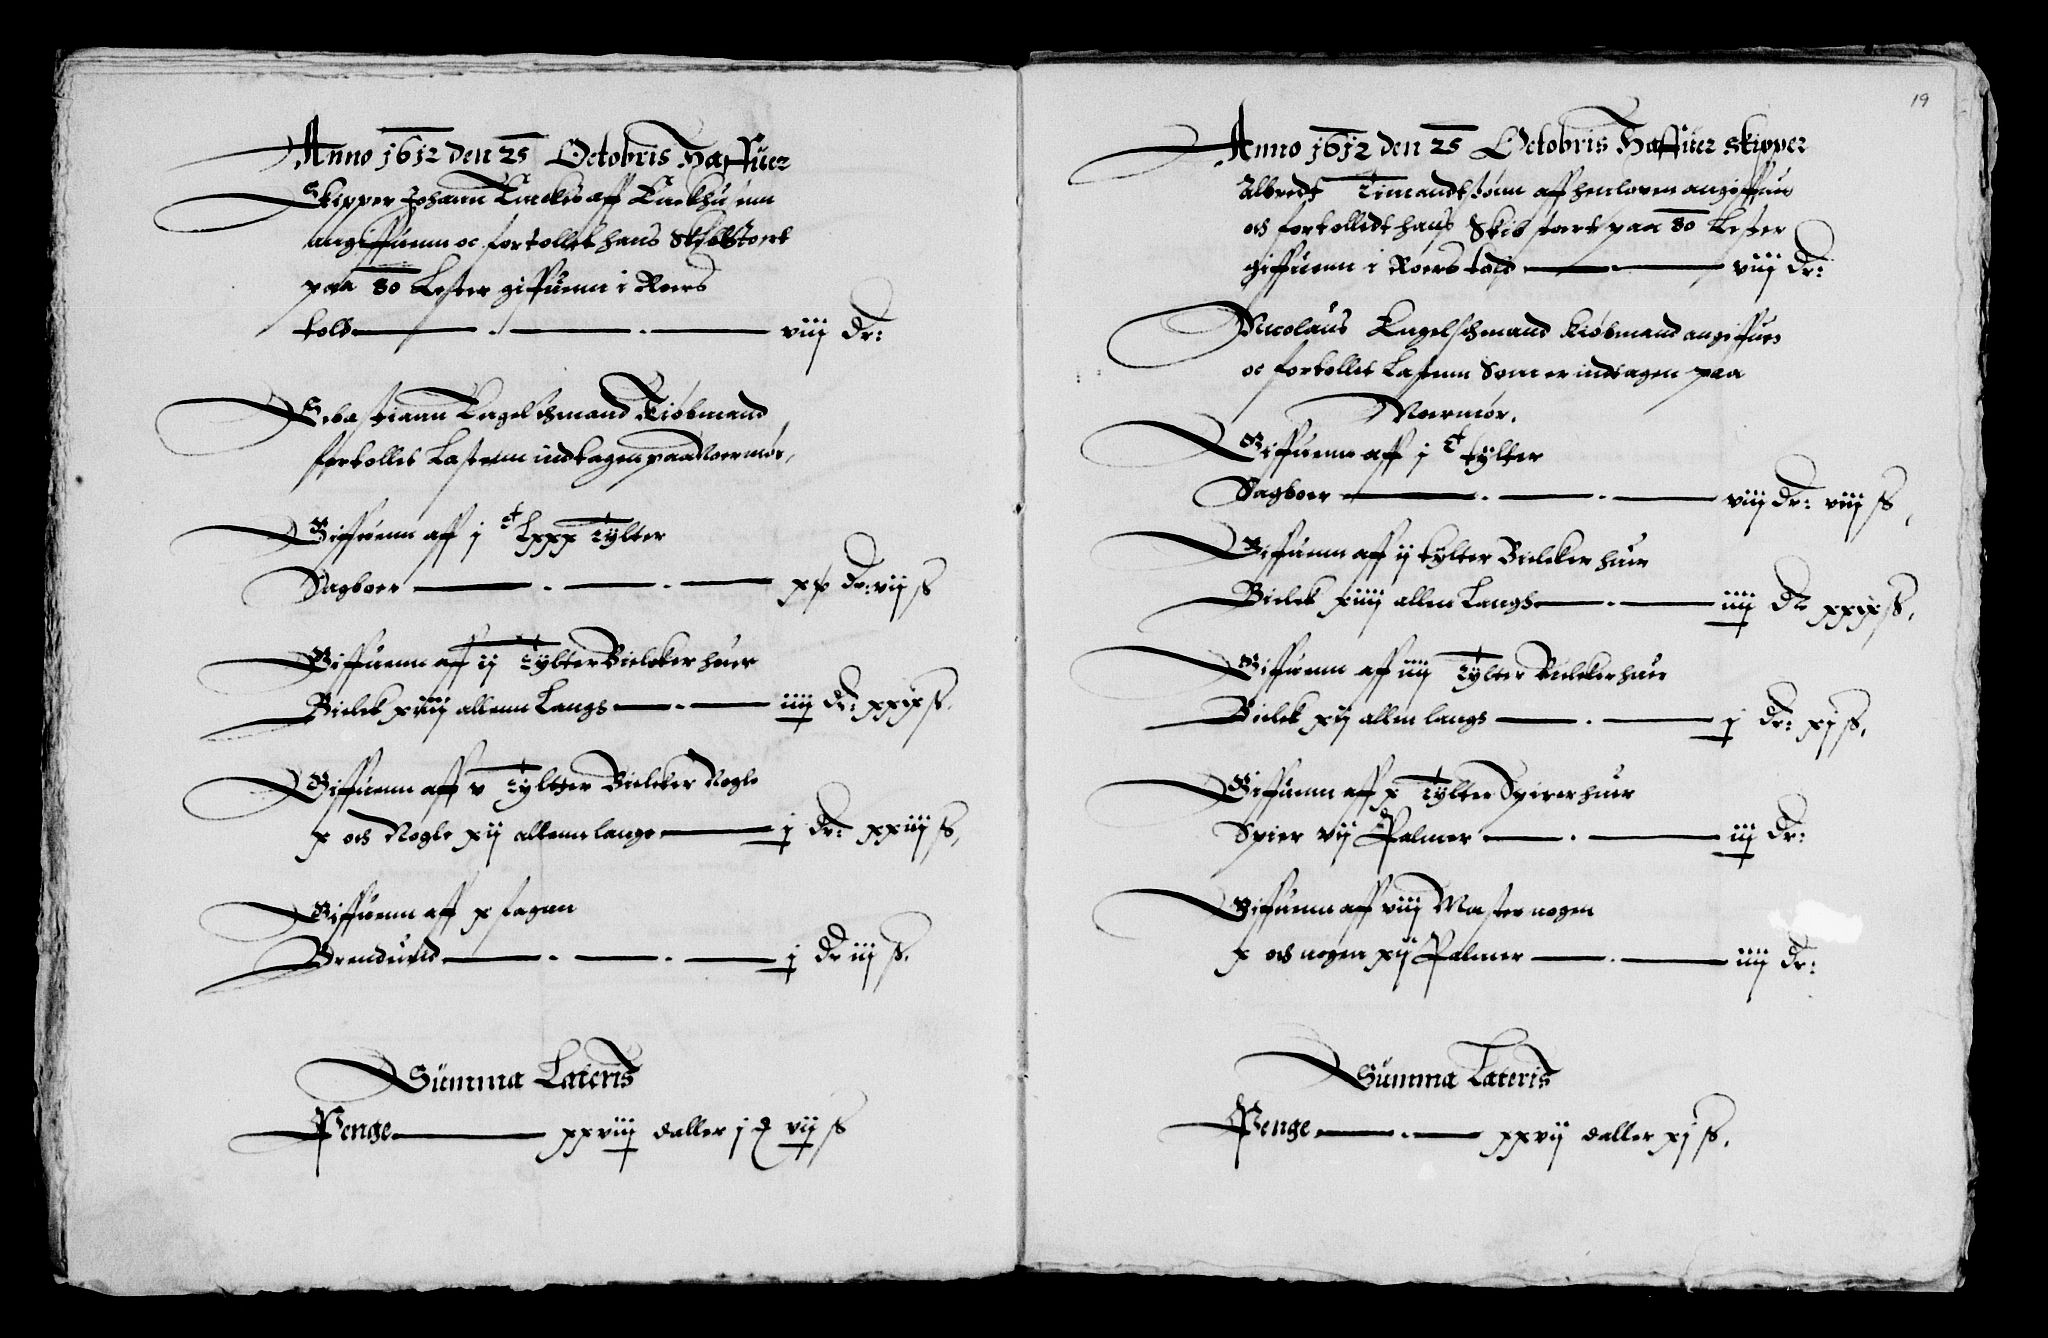 Anno 1612 den 25 Octobris Haffuer
Skipper Johann aff Enckhusenn
angiffuenn oc fortollet hans Skib stort
paa 80 Lester giffuenn i Roers
told viij dr:
Sebastiann Engelschmand Kiøbmand
fortollet Lastenn indtagen paa Noermør,
Giffuenn aff j c lxxx Tylter
Sagboer xv dr: vij ß
Giffuenn aff ij Tylter Bielcker huer
Bielck xiiij allenn Langs iiij dr: xxix ß.
Giffuenn aff v Tyltter Bielcker Nogle
x och Nogle xij allenn lange j dr: xxiiij ß,
Giffuenn aff x fagnn
Brendeued j dr iij ß.
Summa Lateris
Penge xxviij daller j d vij ß
19
Anno 1612 den 25 Octobris Haffuer Skipper
Albredt Timandtsønn aff henlopen angiffuen
och fortolledt hans Skib stort paa 80 Lester
giffuenn i Roers told viij dr:
Nicolaus Engelschmand Kiøbmand angiffuen
oc fortollet Lastenn Som er indtagen paa
Noermør.
Giffuenn aff j c tylter
Sagboer viij dr: viij ß,
Giffuenn aff ij tylter Bielcker huer
Bielck xiiij allen Langs iiij dr xxix ß.
Giffuenn aff iiij Tylter Bielcker huer
Bielck xij allen langs j dr: xj ß.
Giffuenn aff x Tylter Spirer huer
Spier vij Palmer iij dr:
Giffuenn aff viij Master nogen
x och nogen xij Palmer iiij dr:
Summa Lateris
Penge xxvij daller xj ß.